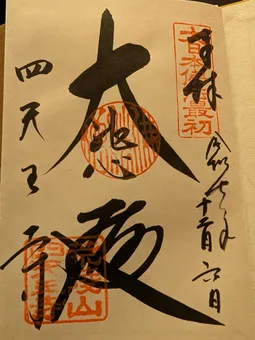 奉拝
大日本佛法最初
令和七年十二月六日
大悲殿
四天王寺
荒陵山
四天王寺